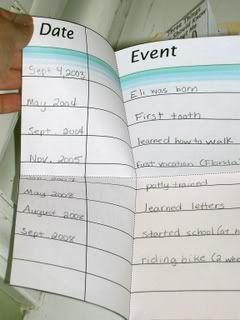 Date Event
Sept 4, 2003 Eli was born
May 2004 First tooth
Sept. 2004 learned how to walk
Nov. 2005 First vacation (Florida
potty trained
May 2008 learned letters
August 2008 started school (at
Sept. 2008 riding bike (2